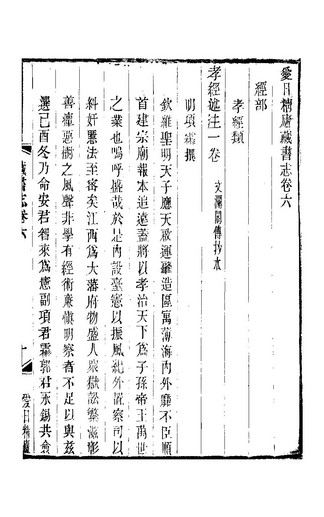 愛日精廬藏書志卷六
經部
孝經類
孝經述注一卷 文瀾閣傳抄本
明項霦撰
欽惟聖明天子應天啟運肇造區寓薄海內外靡不臣順
首建宗廟報本追遠蓋將以孝治天下為子孫帝王萬世
之業也嗚呼盛哉於是內設臺憲以振風紀外置察司以
糾奸慝法至密矣江西為大藩府物盛人衆獄訟繁滋彰
善癉惡樹之風聲非學有經術廉慎明察者不足以與茲
選己酉冬乃命安君智來為憲副項君霦郭君永錫共僉
藏書志卷六
一
愛日精廬